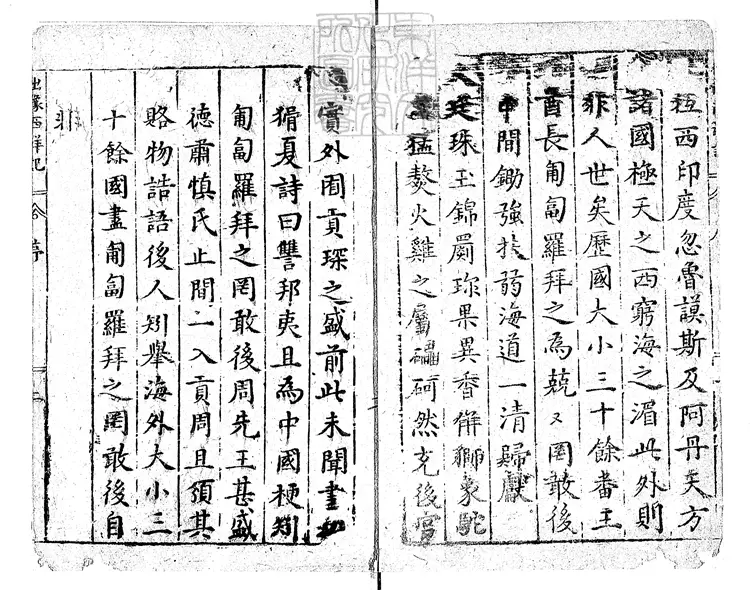 極西印度忽魯謨斯及阿丹天方
諸國極天之西窮海之湄此外則
非人世矣歷國大小三十餘番王
酋長匍匐羅拜之為兢〻罔敢後
中間鋤強扶弱海道一清歸獻
珠玉錦罽珎果異香獬獅象駝
猛獒火雞之屬磊砢然充後宮
實外囿貢琛之盛前此未聞書
猾夏詩曰讐邦夷且為中國梗矧
匍匐羅拜之罔敢後周先王甚盛
德肅慎氏止間一入貢周且須其
賂物誥語後人矧舉海外大小三
十餘國盡匍匐羅拜之罔敢後自
非
西洋記
序